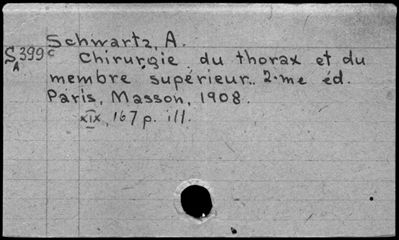 Schwartz, A.
S399c
A
Chirurgie du thorax et du
membre supérieur.. 2.me éd.
Paris, Masson, 1908.
xix, 167 p. ill.